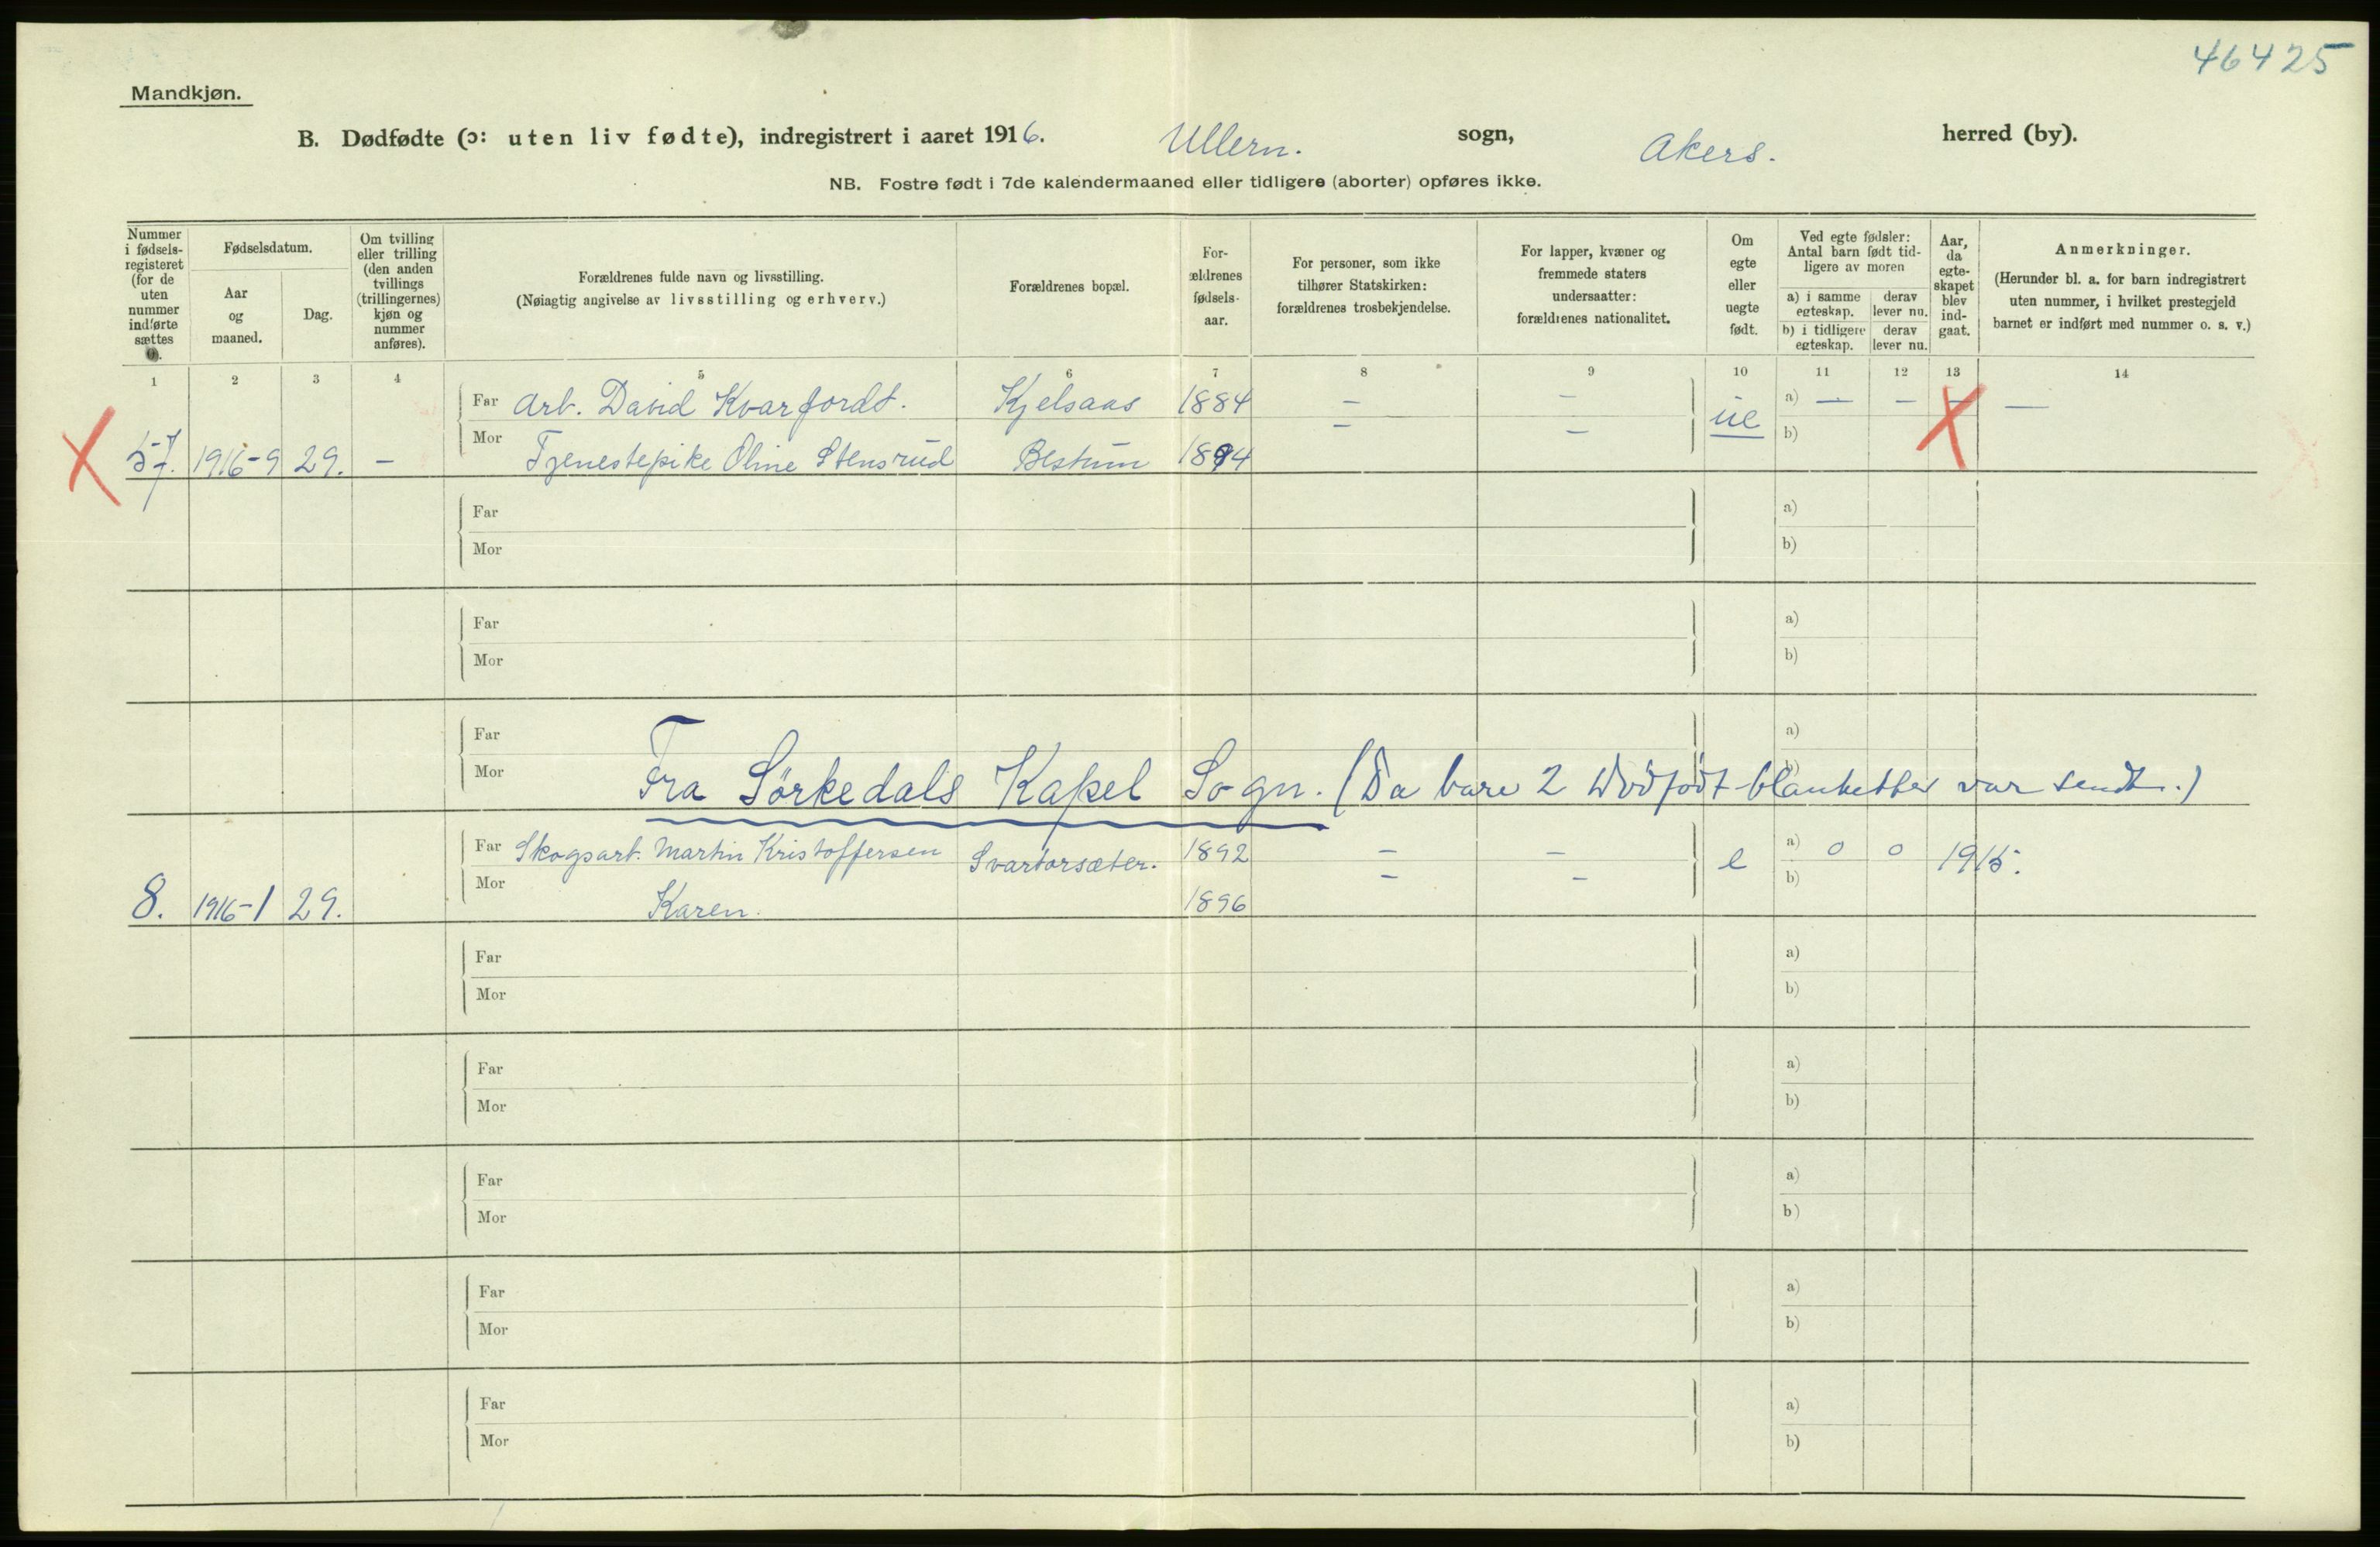 46425
Mandkjøn.
B. Dødfødte (ɔ: uten liv fødte), indregistrert i aaret 1916. Ullern. sogn, Akers. herred (by).
NB. Fostre født i 7de kalendermaaned eller tidligere (aborter) opføres ikke.
Nummer i fødsels-registeret (for de uten nummer indførte sættes 0).
Fødselsdatum.
Aar og maaned.
Dag.
Om tvilling eller trilling (den anden tvillings (trillingernes) kjøn og nummer anføres).
Forældrenes fulde navn og livsstilling.
(Nøiagtig angivelse av livsstilling og erhverv.)
Forældrenes bopæl.
For-ældrenes fødsels-aar.
For personer, som ikke tilhører Statskirken: forældrenes trosbekjendelse.
For lapper, kvæner og fremmede staters undersaatter: forældrenes nationalitet.
Om egte eller uegte født.
Ved egte fødsler: Antal barn født tid-ligere av moren
a) i samme egteskap.
derav lever nu.
b) i tidligere egteskap.
derav lever nu.
Aar, da egte-skapet blev ind-gaat.
Anmerkninger.
(Herunder bl. a. for barn indregistrert uten nummer, i hvilket prestegjeld barnet er indført med nummer o. s. v.)
1 2 3 4 5 6 7 8 9 10 11 12 13 14
Far Arb. David Kvarfordt. Kjelsaas 1884 — — ue a) — — — —
57. 1916-9 29. — Mor Tjenestepike Oline Stensrud Bestum 1894 — — b)
Far a)
Mor b)
Far a)
Mor b)
Far a)
Mor b)
Fra Sörkedals Kapel Sogn. (Da bare 2 Dödfödt blanketter var sendt.)
Far Skogsarb. Martin Kristoffersen Svartorsæter. 1892 — — e a) 0 0 1915.
8. 1916-1 29. Mor Karen. 1896 — — b)
Far a)
Mor b)
Far a)
Mor b)
Far a)
Mor b)
Far a)
Mor b)
Far a)
Mor b)